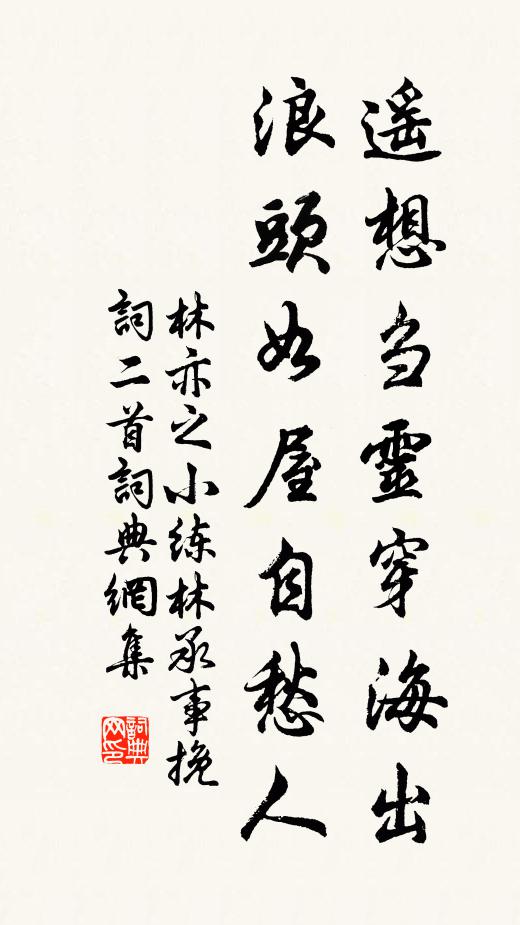 遥想刍靈穿海出
浪頭如屋自愁人
林亦之小練林承事挽
詞二首詞典網集
詞典
网印